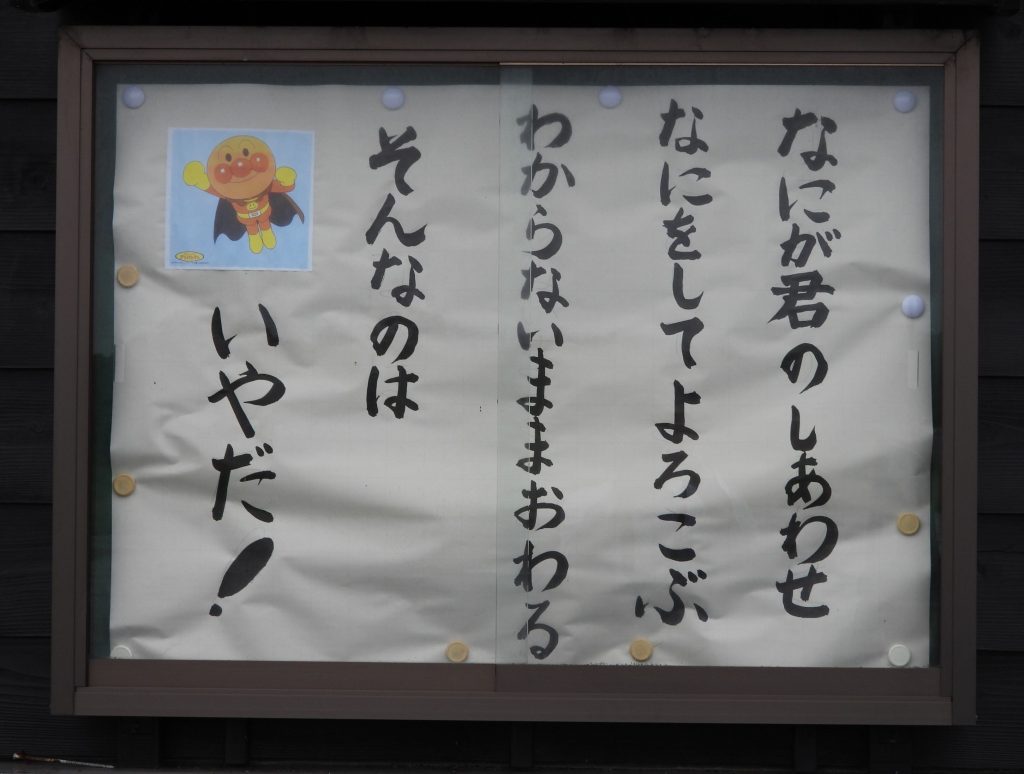 なにが君のしあわせ
なにをしてよろこぶ
わからないままおわる
そんなのは
いやだ!